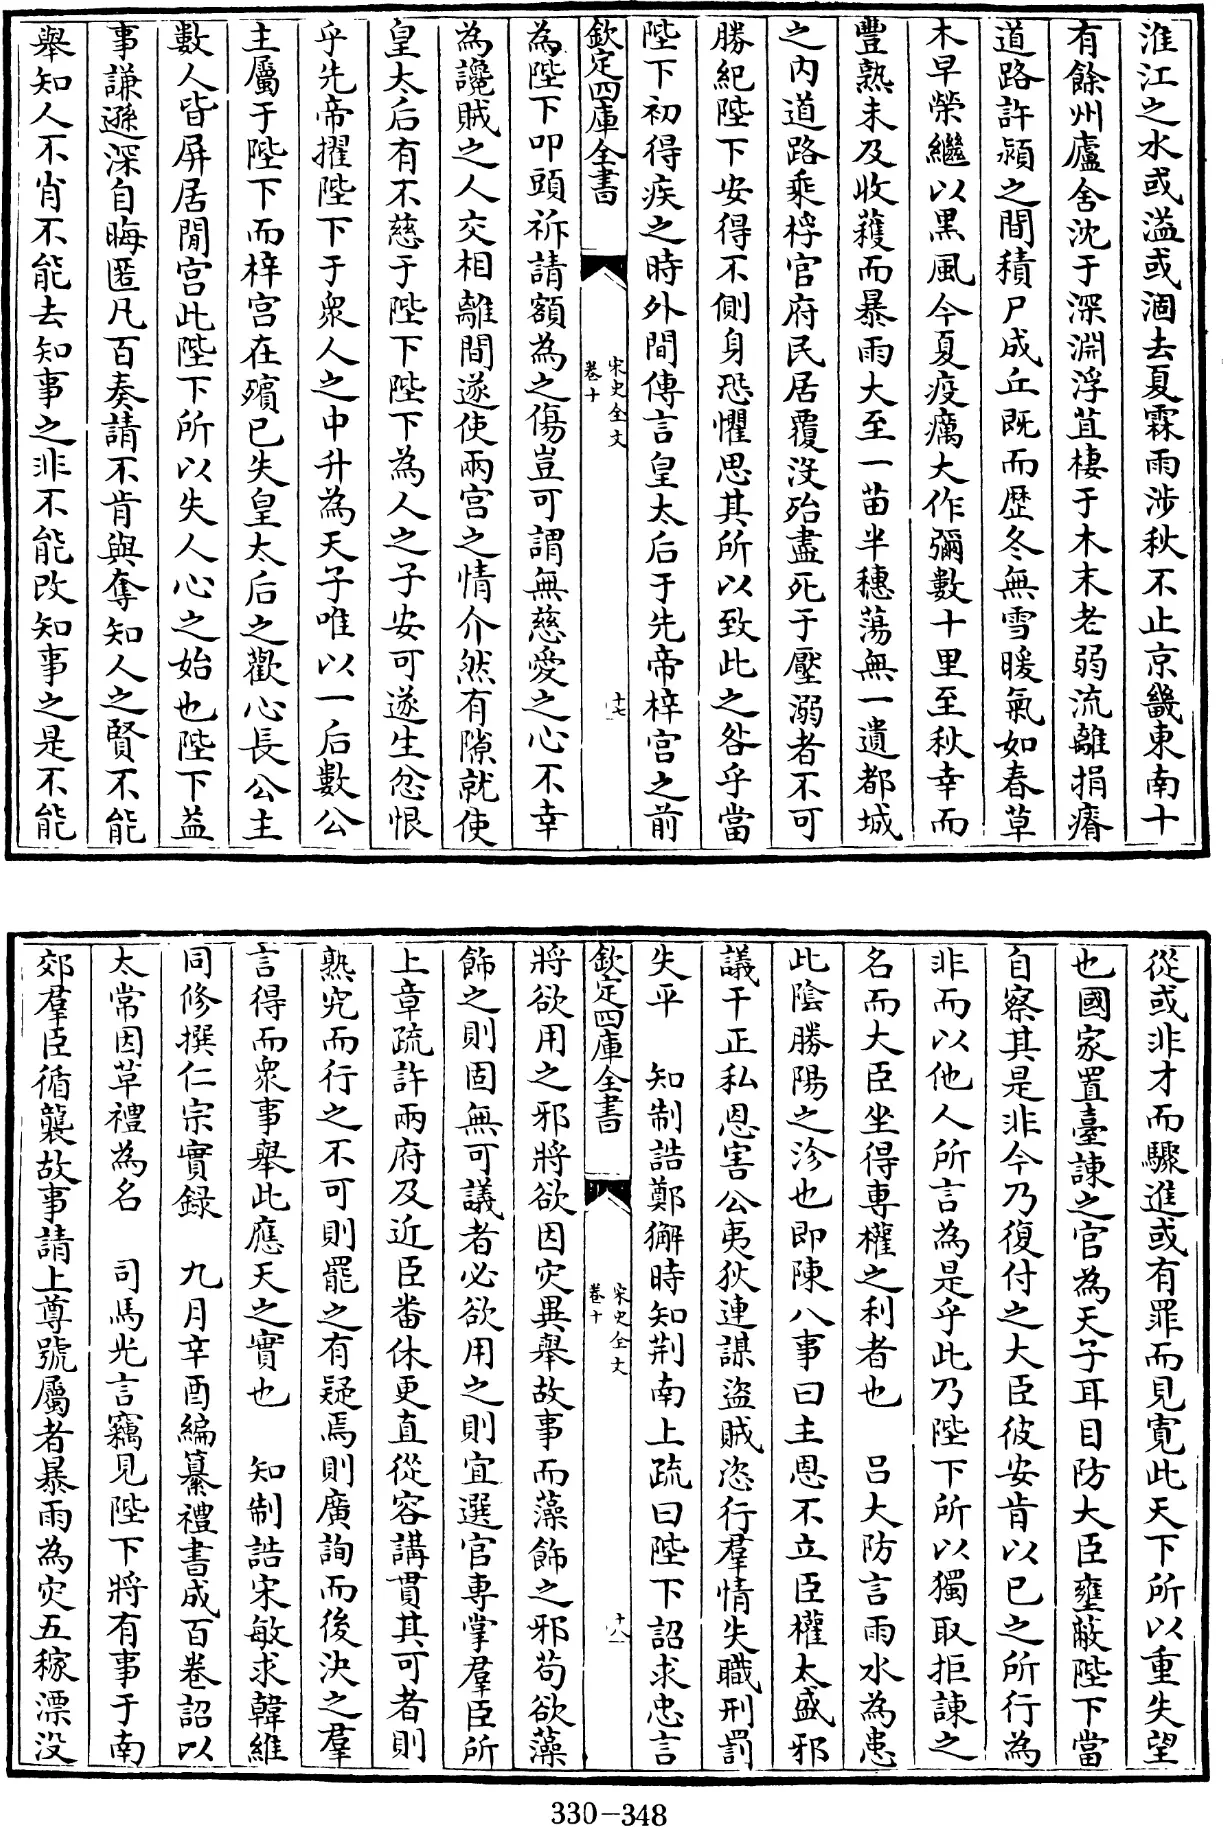 淮江之水或溢或涸去夏霖雨涉秋不止京畿東南十
有餘州廬舍沈于深淵浮苴棲于木末老弱流離捐瘠
道路許潁之間積尸成丘既而歴冬無雪暖氣如春草
木早榮繼以黑風今夏疫癘大作彌數十里至秋幸而
豐熟未及收穫而暴雨大至一苗半穗蕩無一遺都城
之内道路乘桴官府民居覆沒殆盡死于壓溺者不可
勝紀陛下安得不側身恐懼思其所以致此之咎乎當
陛下初得疾之時外間傳言皇太后于先帝梓宫之前
欽定四庫全書
宋史全文
卷十
十七
為陛下叩頭祈請額為之傷豈可謂無慈愛之心不幸
為讒賊之人交相離間遂使兩宫之情介然有隙就使
皇太后有不慈于陛下陛下為人之子安可遂生忿恨
乎先帝擢陛下于衆人之中升為天子唯以一后數公
主屬于陛下而梓宫在殯已失皇太后之歡心長公主
數人皆屏居閒宫此陛下所以失人心之始也陛下益
事謙遜深自晦匿凡百奏請不肯與奪知人之賢不能
舉知人不肖不能去知事之非不能改知事之是不能
從或非才而驟進或有罪而見寛此天下所以重失望
也國家置臺諫之官為天子耳目防大臣壅蔽陛下當
自察其是非今乃復付之大臣彼安肯以已之所行為
非而以他人所言為是乎此乃陛下所以獨取拒諫之
名而大臣坐得専權之利者也　吕大防言雨水為患
此陰勝陽之沴也即陳八事曰主恩不立臣權太盛邪
議干正私恩害公夷狄連謀盜賊恣行羣情失職刑罰
失平　知制誥鄭獬時知荆南上疏曰陛下詔求忠言
欽定四庫全書
宋史全文
卷十
十八
將欲用之邪將欲因灾異舉故事而藻飾之邪苟欲藻
飾之則固無可議者必欲用之則宜選官専掌羣臣所
上章疏許兩府及近臣番休更直從容講貫其可者則
熟究而行之不可則罷之有疑焉則廣詢而後決之羣
言得而衆事舉此應天之實也　知制誥宋敏求韓維
同修撰仁宗實録　九月辛酉編纂禮書成百巻詔以
太常因革禮為名　司馬光言竊見陛下將有事于南
郊羣臣循襲故事請上尊號屬者暴雨為灾五稼漂没
330-348